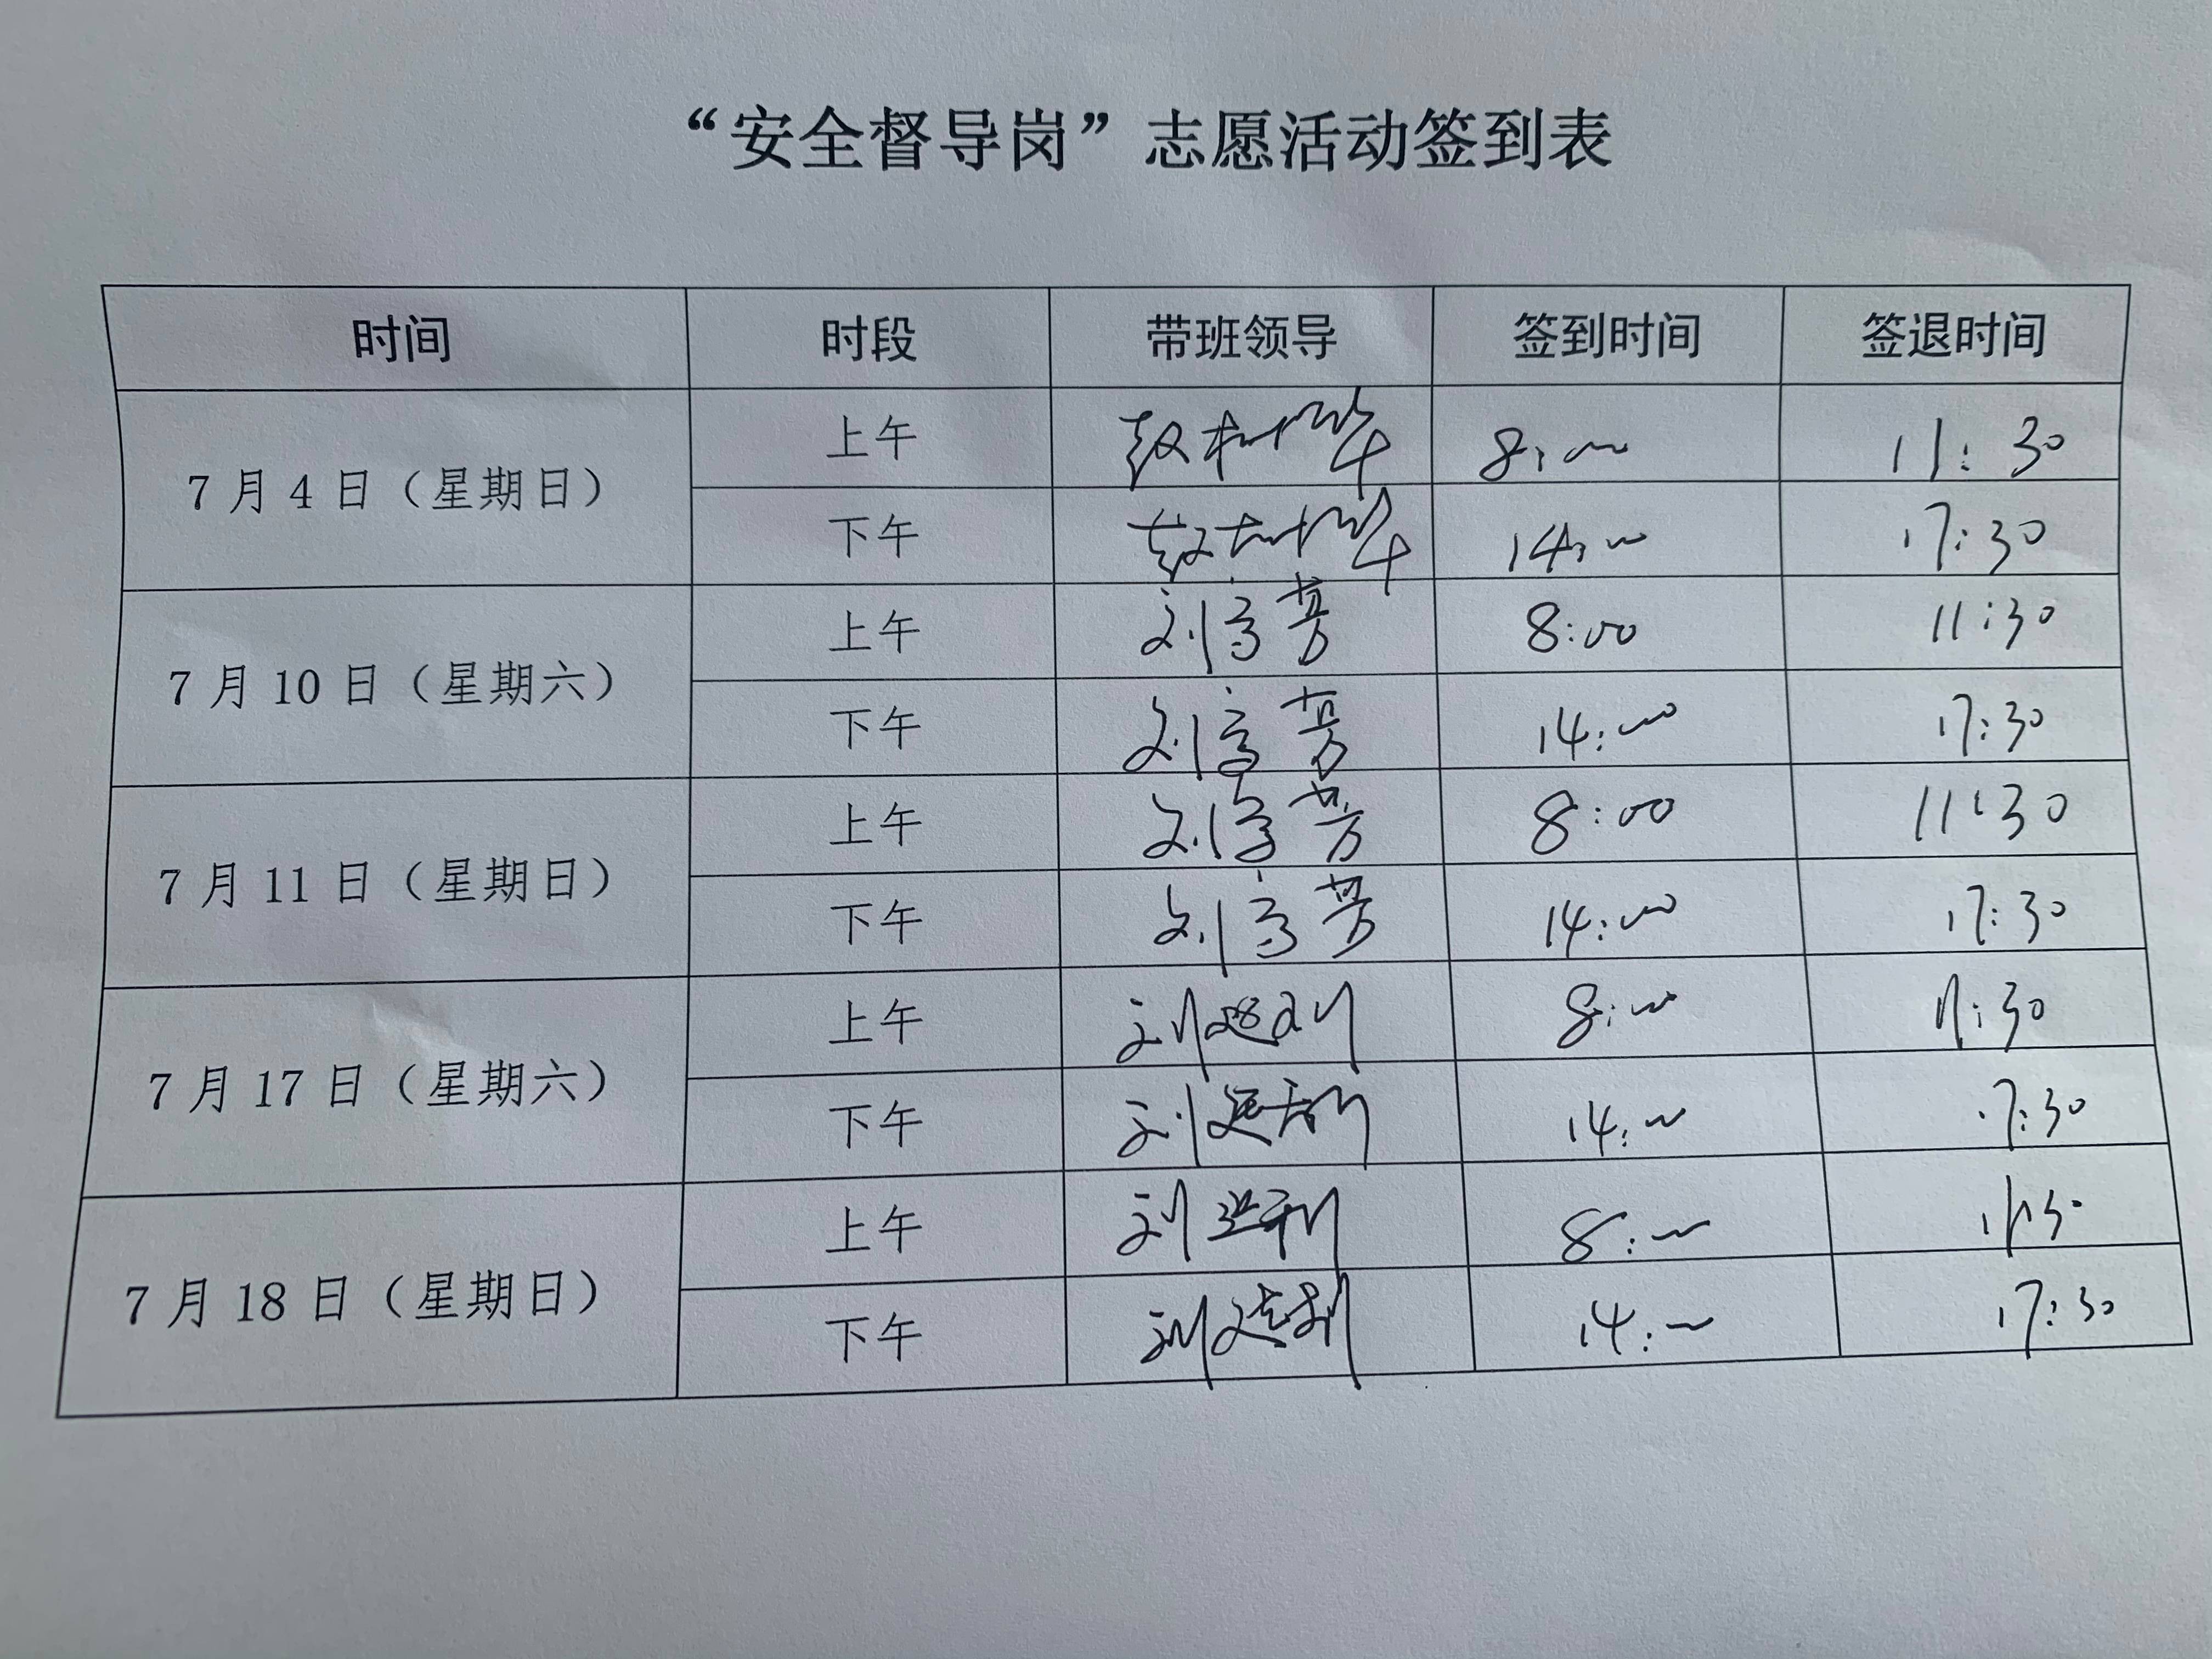 “安全督导岗”志愿活动签到表
时间 时段 带班领导 签到时间 签退时间
7月4日（星期日） 上午 8:00 11:30
下午 14:00 17:30
7月10日（星期六） 上午 刘 芳 8:00 11:30
下午 刘 芳 14:00 17:30
7月11日（星期日） 上午 刘 芳 8:00 11:30
下午 刘 芳 14:00 17:30
7月17日（星期六） 上午 刘 利 8:00 11:30
下午 刘 利 14:00 17:30
7月18日（星期日） 上午 刘 利 8:00 11:30
下午 刘 利 14:00 17:30